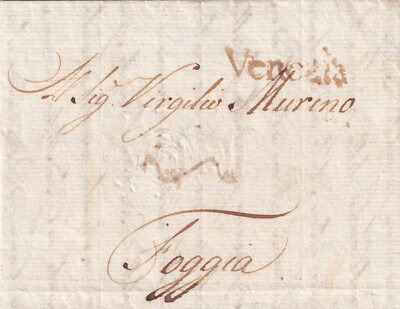 Venezia
Al Sig.r Virgilio Murino
Foggia